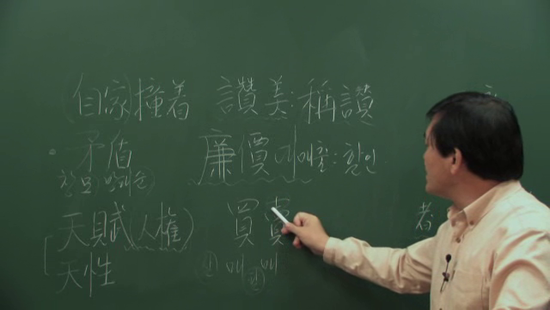 (自家)撞着 讚美:稱讚
矛盾 廉價 매출:할인
창모 방패순
天賦(人權) 買賣 者
天性 매 매